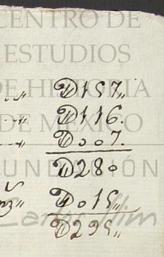 CENTRO DE
D157„
ESTUDIOS
D116.
DE HISTORIA
D007.
DE MÉXICO
D280
FUNDACIÓN
D015„
Carlos Slim
D295„